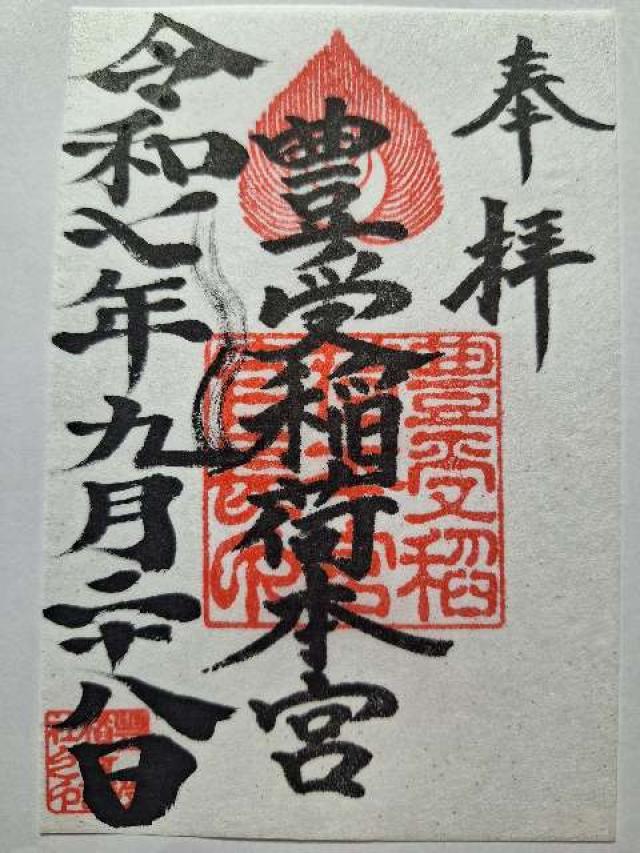 奉拝
豊受稲荷本宮
令和七年九月二十八日
豊受稲